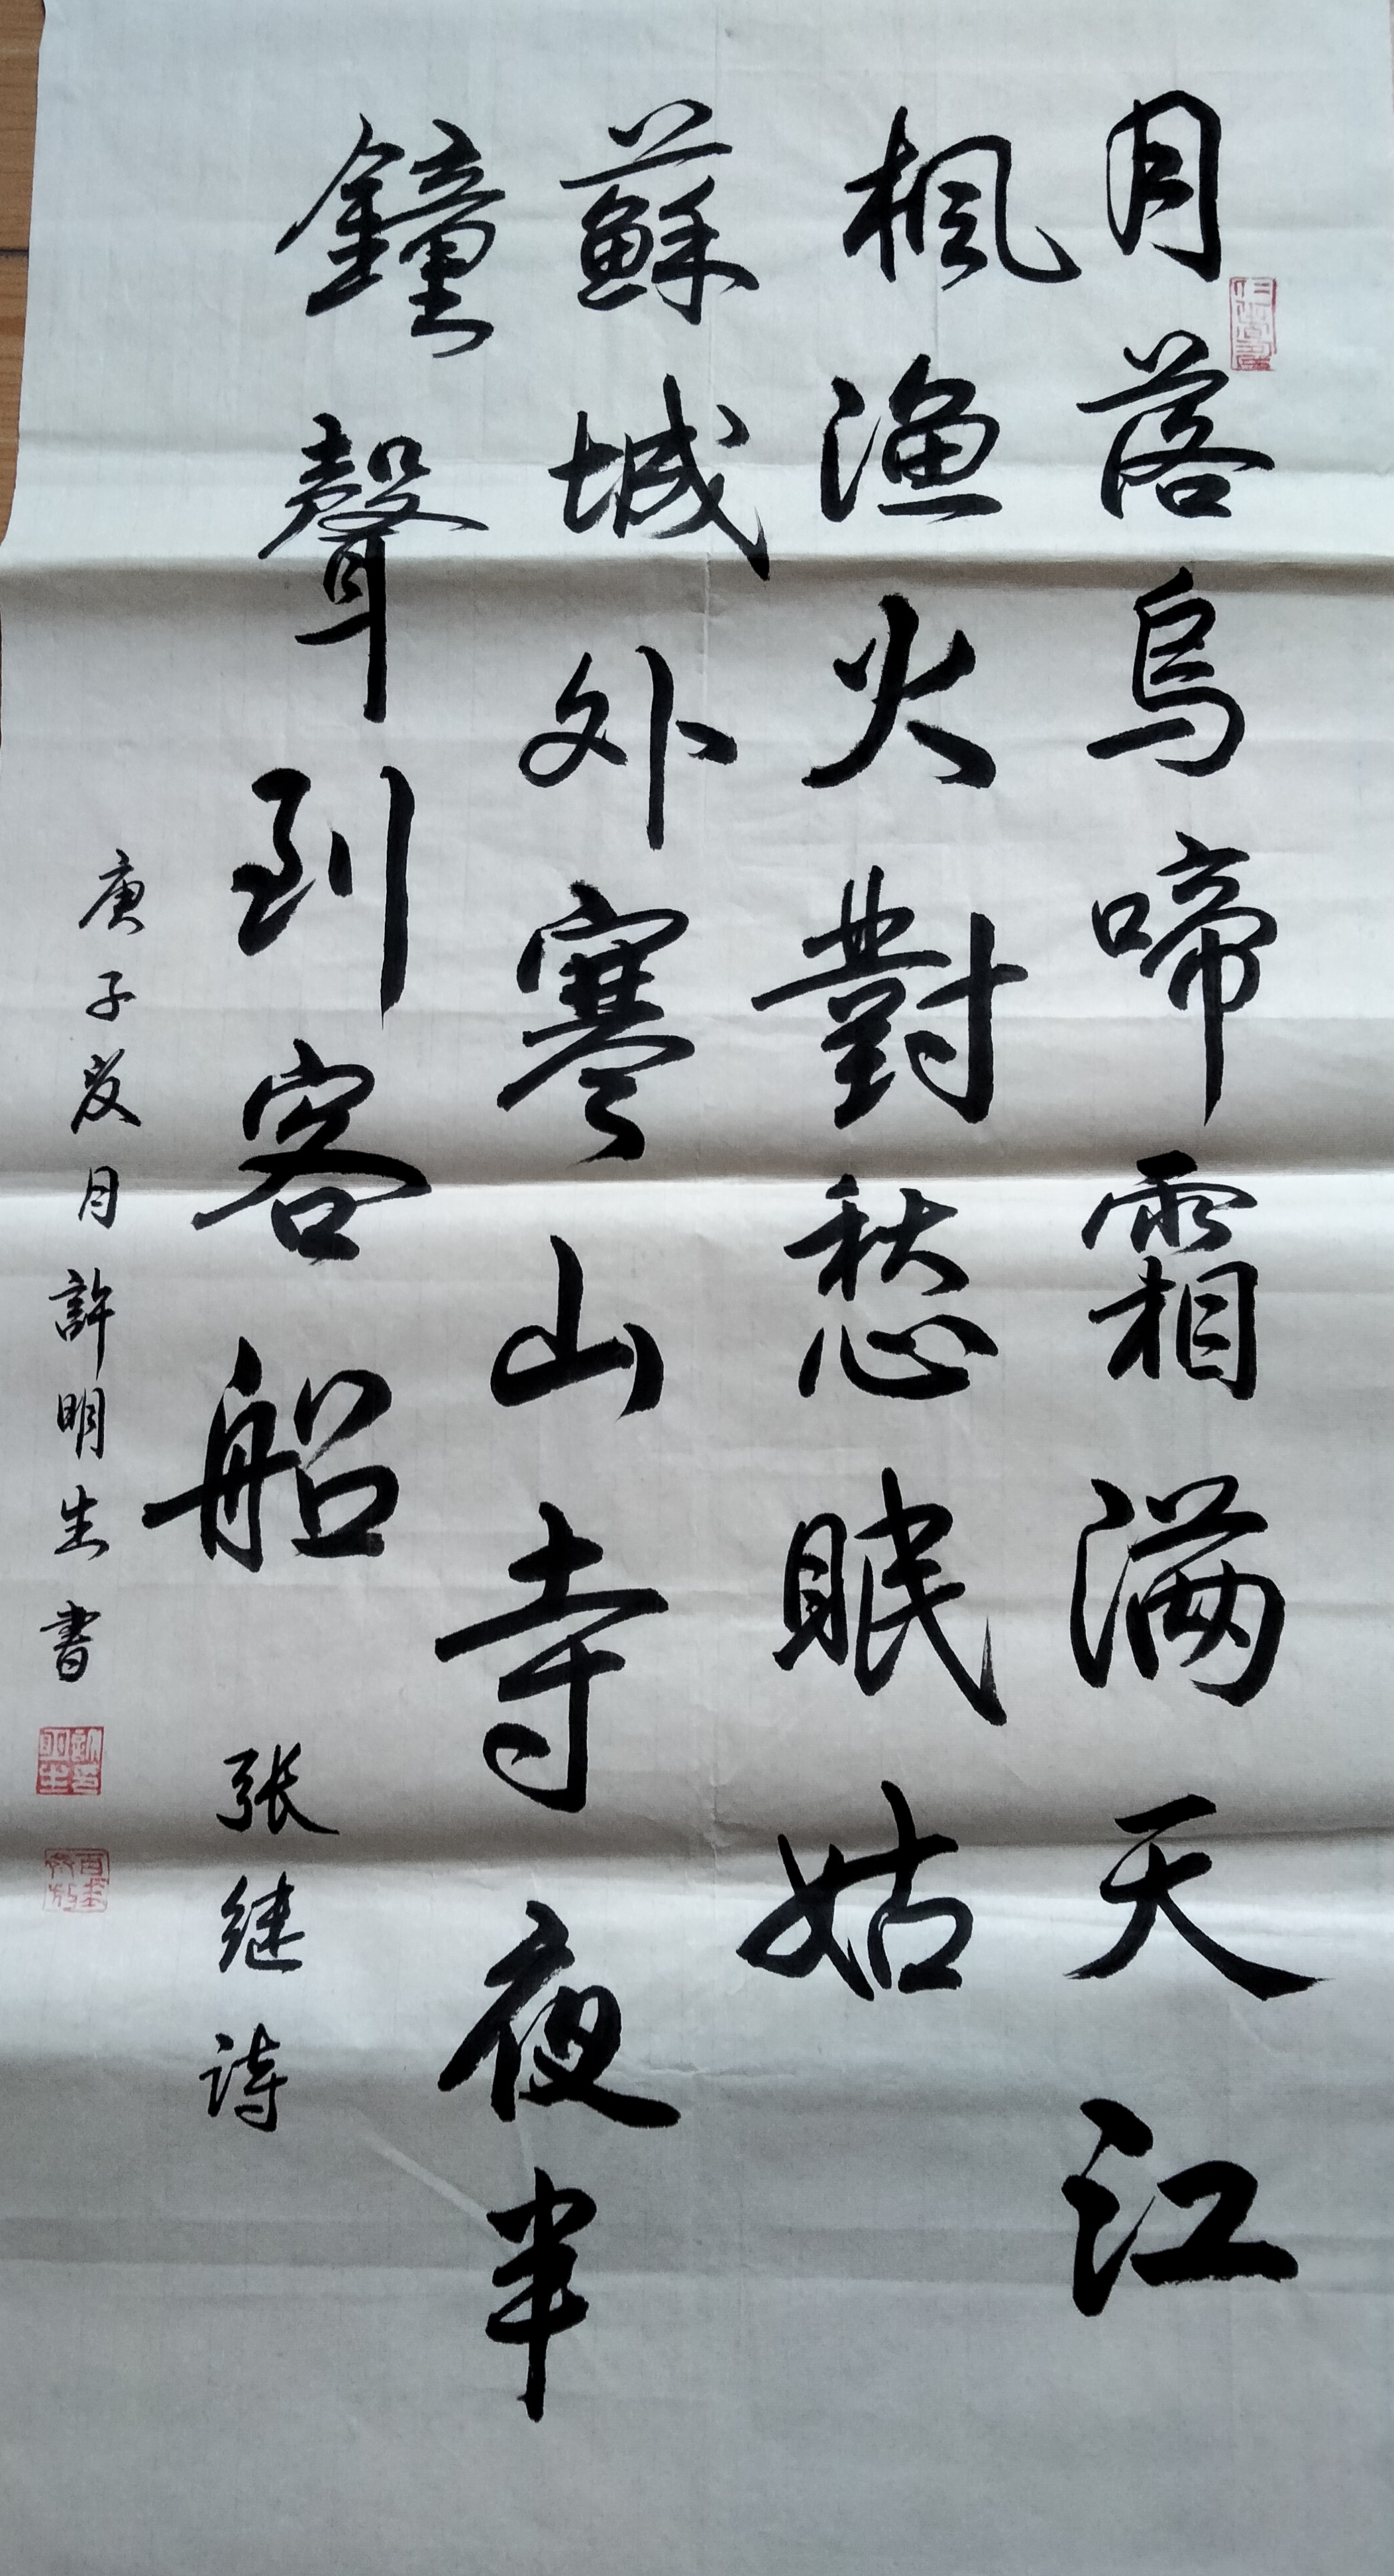 月落烏啼霜满天江
楓漁火對愁眠姑
蘇城外寒山寺夜半
鐘聲到客船
张继诗
庚子夏月許明生書